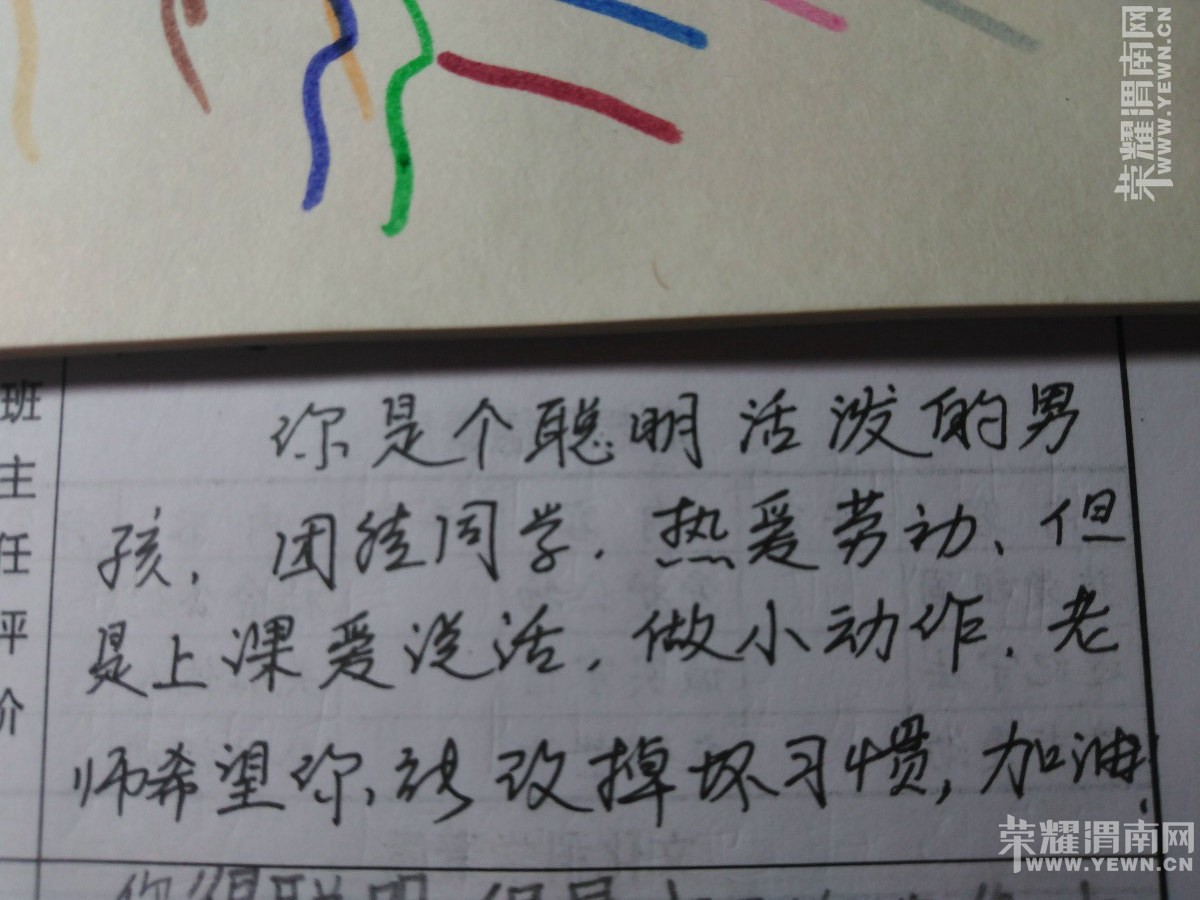 荣耀渭南网
WWW.YEWN.CN
班主任评价
你是个聪明活泼的男
孩，团结同学．热爱劳动、但
是上课爱说话，做小动作．老
师希望你能改掉坏习惯，加油！
荣耀渭南网
WWW.YEWN.CN